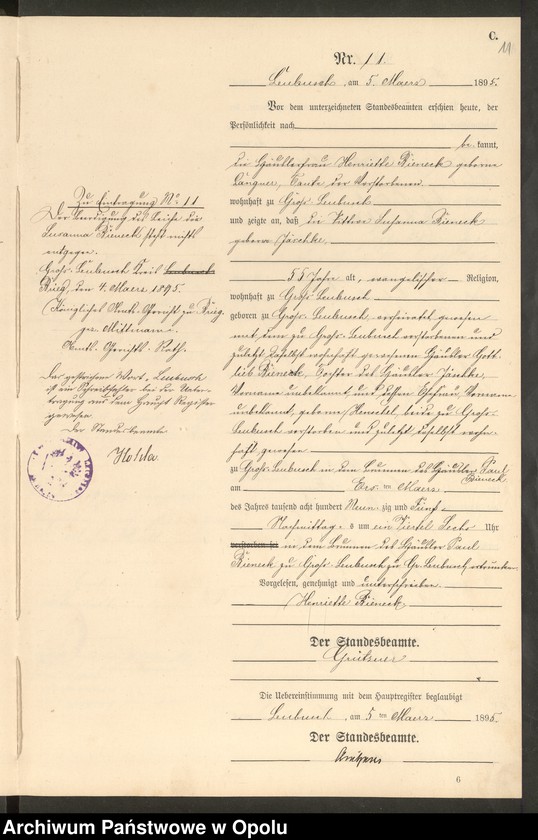 C.
11
Nr. 11.
Leubusch, am 5. Maerz 1895.
Vor dem unterzeichneten Standesbeamten erschien heute, der
Persönlichkeit nach
be kannt,
die Häuslerfrau Henriette Bieneck geborene
Langner, Tante der Verstorbenen
wohnhaft zu Groß Leubusch
und zeigte an, daß die Wittwe Susanna Bieneck
geborne Jäschke,
55 Jahre alt, evangelischer Religion,
wohnhaft zu Groß Leubusch
geboren zu Groß Leubusch, verheiratet gewesen
mit dem zu Groß Leubusch verstorbenen und
zuletzt daselbst wohnhaft gewesenen Häusler Gott-
lieb Bieneck, Tochter des Häusler Jäschke,
Vorname unbekannt, und dessen Ehefrau, Vorname
unbekannt, geborne Hentschel, beide zu Groß
Leubusch verstorben und zuletzt daselbst wohn-
haft gewesen
zu Groß Leubusch in dem Brunnen des Häusler Paul
Bieneck
am Ersten Maerz
des Jahres tausend acht hundert Neun zig und Fünf
Nachmittags um ein Viertel Sechs Uhr
verstorben sei in dem Brunnen des Häusler Paul
Bieneck zu Groß Leubusch zu Gr. Leubusch ertrunken
Vorgelesen, genehmigt und unterschrieben
Henriette Bieneck
Der Standesbeamte.
Grützner
Die Uebereinstimmung mit dem Hauptregister beglaubigt
Leubusch, am 5ten Maerz 1895.
Der Standesbeamte.
Grützner
6
Zu Eintragung No 11
Der Beerdigung der Leiche der
Susanna Bieneck steht nichts
entgegen.
Groß Leubusch Leubusch
Brieg, den 4. Maerz 1895.
Königliches Amts-Gericht zu Brieg.
gez. Mittmann.
Amts-Gerichts-Rath.
Das gestrichene Wort "Leubusch
ist ein Schreibfehler bei der Ueber-
tragung aus dem Haupt Register
gewesen
Der Standesbeamte
Archiwum Państwowe w Opolu